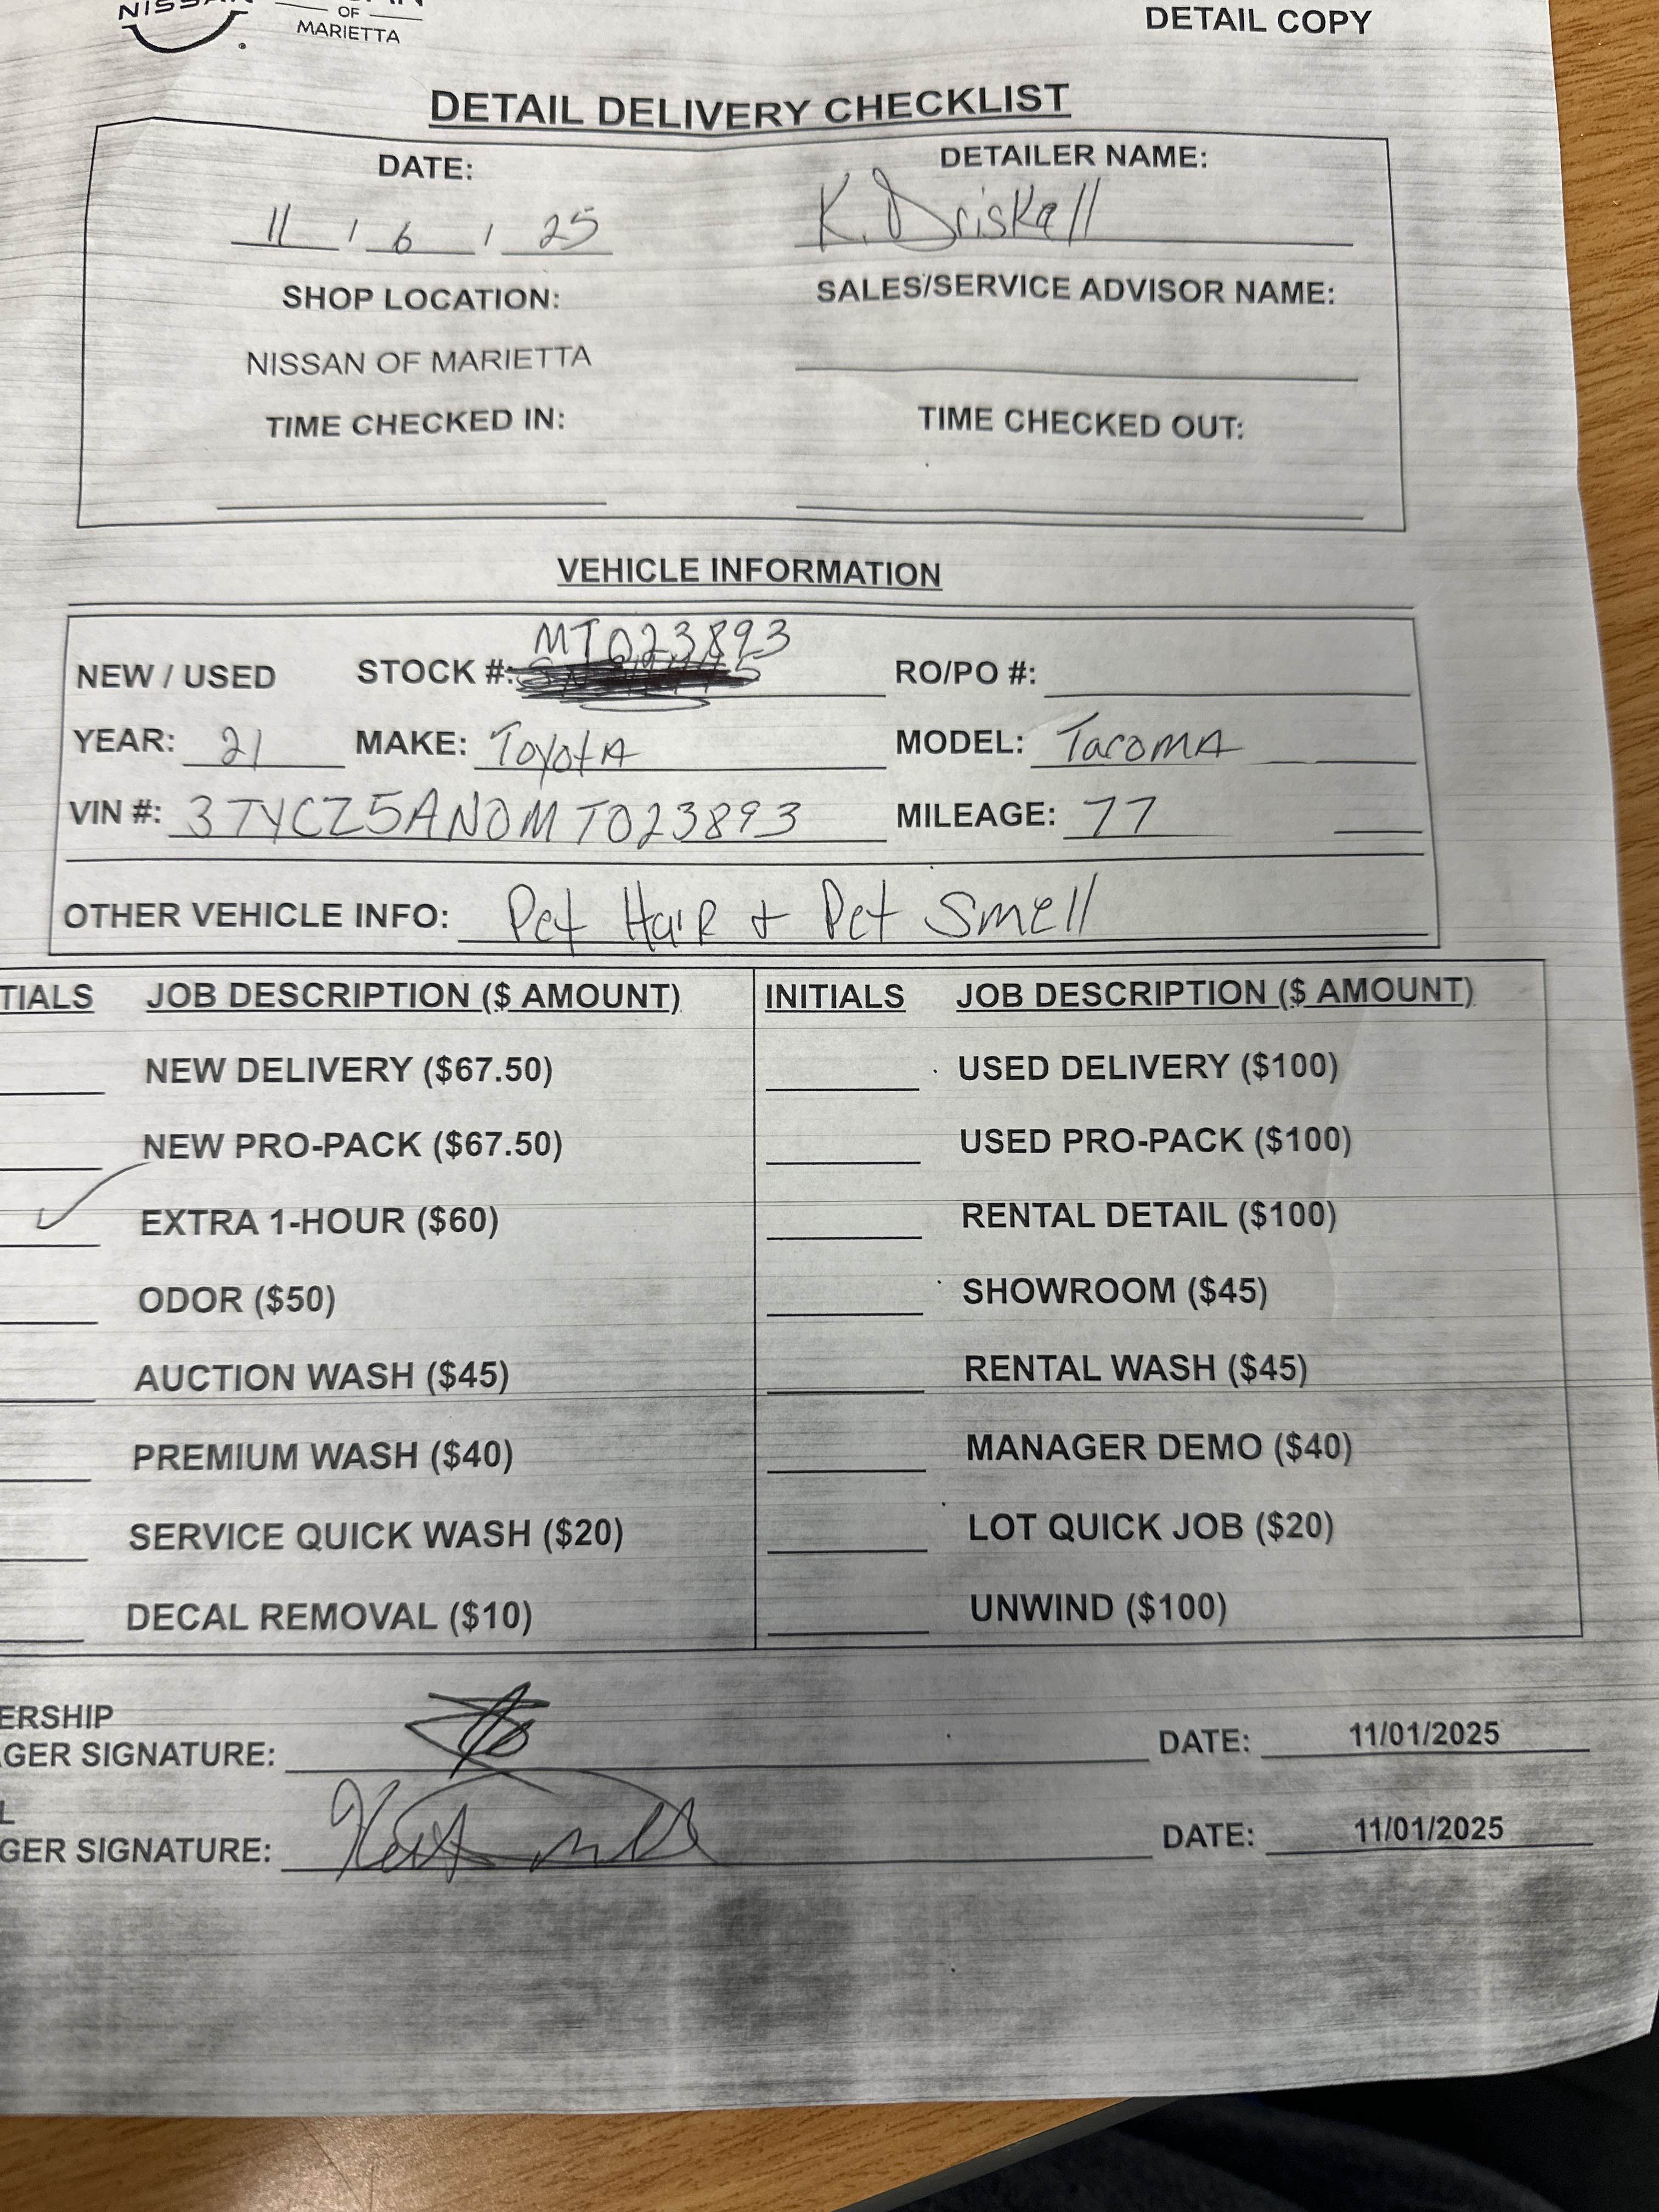 OF
MARIETTA
DETAIL COPY
DETAIL DELIVERY CHECKLIST
DATE:
11 / 6 / 25
DETAILER NAME:
K. Driskell
SHOP LOCATION:
NISSAN OF MARIETTA
SALES/SERVICE ADVISOR NAME:
TIME CHECKED IN:
TIME CHECKED OUT:
VEHICLE INFORMATION
NEW / USED STOCK #: MT023893 RO/PO #:
YEAR: 21 MAKE: Toyota MODEL: Tacoma
VIN #: 3TYCZ5AN0MT023893 MILEAGE: 77
OTHER VEHICLE INFO: Pet Hair + Pet Smell
TIALS JOB DESCRIPTION ($ AMOUNT) INITIALS JOB DESCRIPTION ($ AMOUNT)
NEW DELIVERY ($67.50) USED DELIVERY ($100)
NEW PRO-PACK ($67.50) USED PRO-PACK ($100)
✓ EXTRA 1-HOUR ($60) RENTAL DETAIL ($100)
ODOR ($50) SHOWROOM ($45)
AUCTION WASH ($45) RENTAL WASH ($45)
PREMIUM WASH ($40) MANAGER DEMO ($40)
SERVICE QUICK WASH ($20) LOT QUICK JOB ($20)
DECAL REMOVAL ($10) UNWIND ($100)
ERSHIP
GER SIGNATURE: DATE: 11/01/2025
L
GER SIGNATURE: DATE: 11/01/2025